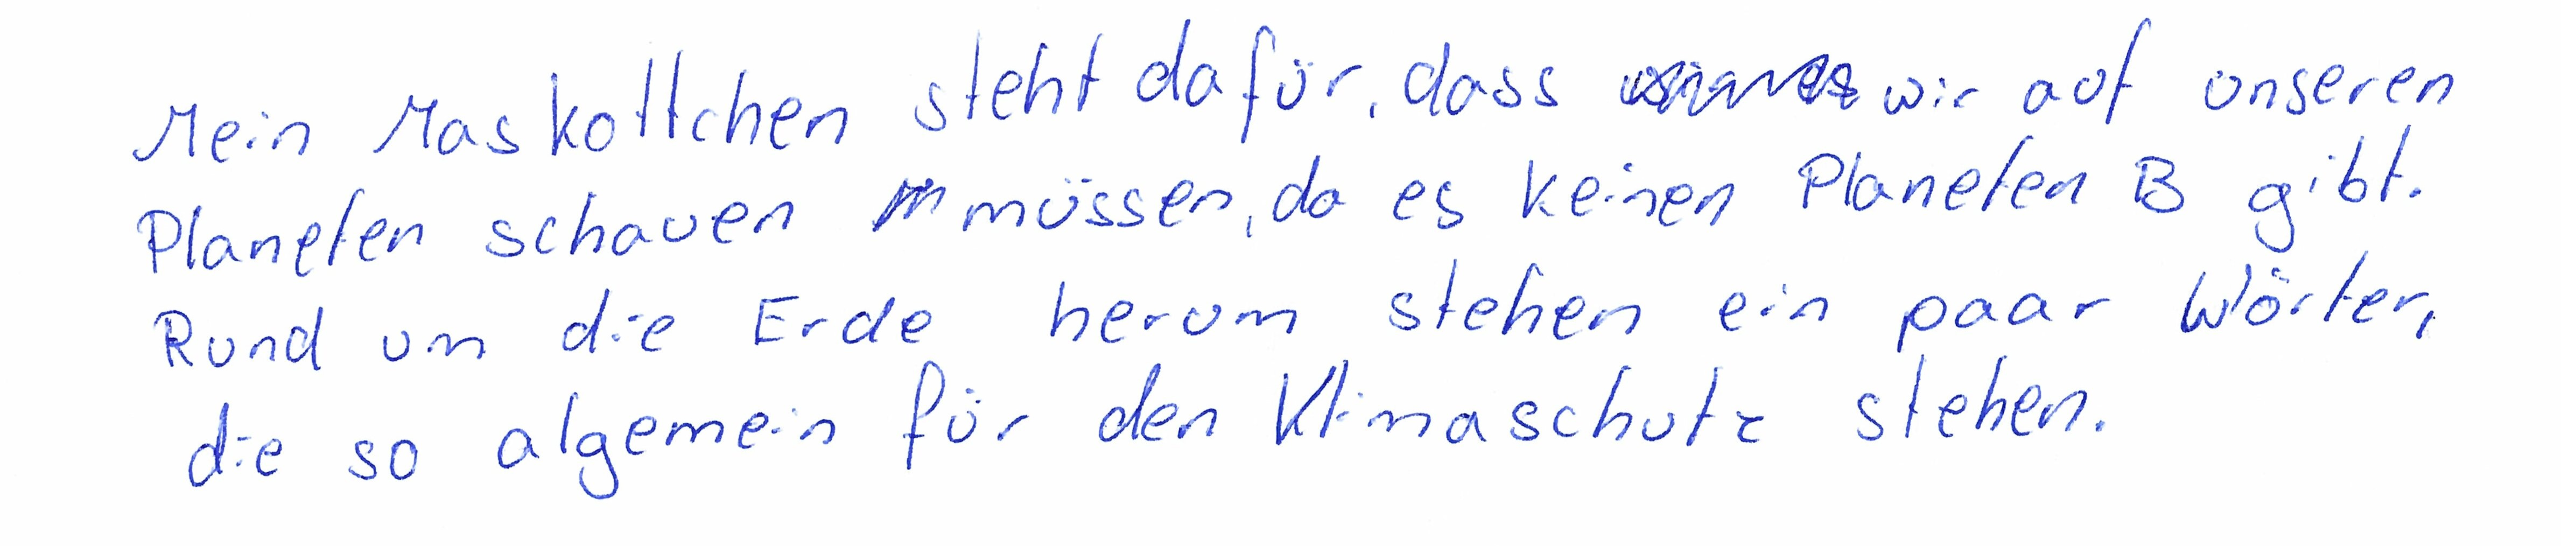 Mein Maskottchen steht dafür, dass wir auf unseren
Planeten schauen müssen, da es keinen Planeten B gibt.
Rund um die Erde herum stehen ein paar Wörter,
die so algemein für den Klimaschutz stehen.